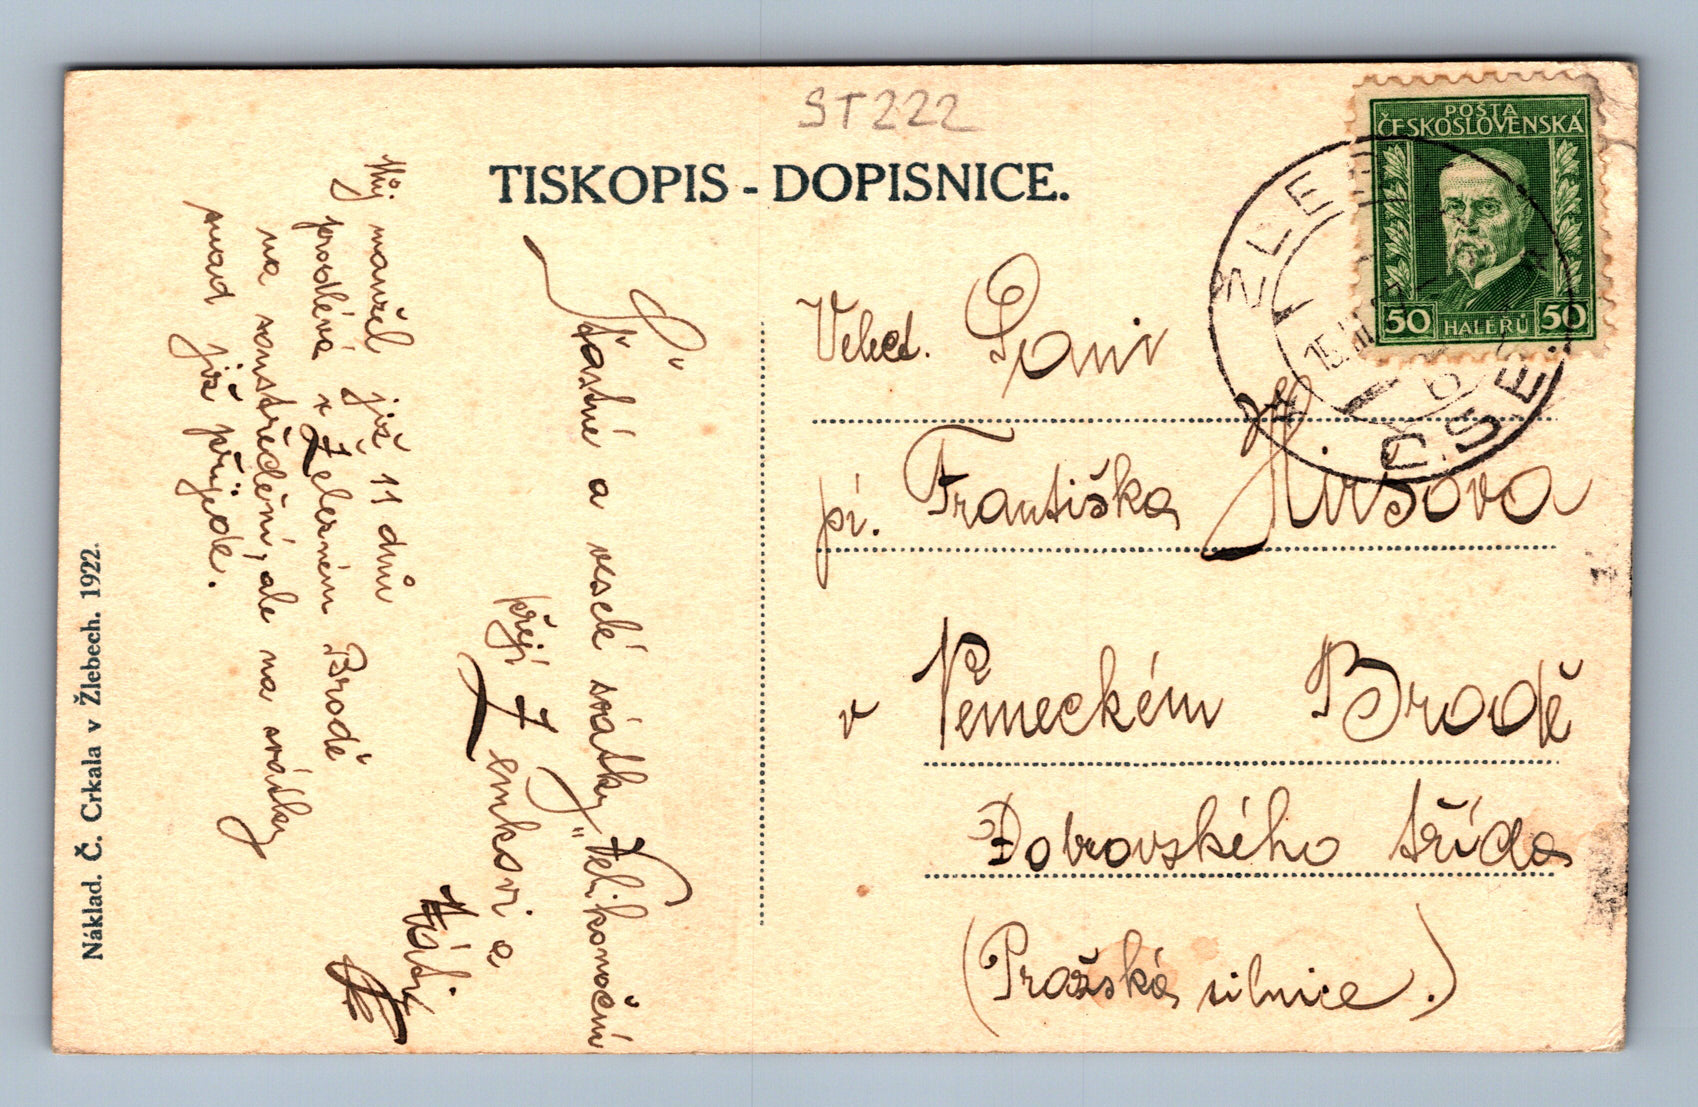 ST222
TISKOPIS - DOPISNICE.
POŠTA
ČESKOSLOVENSKÁ
50 HALÉŘŮ 50
Velect. Paní
pí. Františka Hiršova
v Německém Brodě
Dobrovského třída
(Pražská silnice.)
Šťastné a veselé svátky Velikonoční
přejí Zemkovi a
Můj manžel již 11 dnů
prodlévá v Železném Brodě
na soustředění, ale na svátky
snad již přijede.
Náklad. Č. Crkala v Žlebech. 1922.